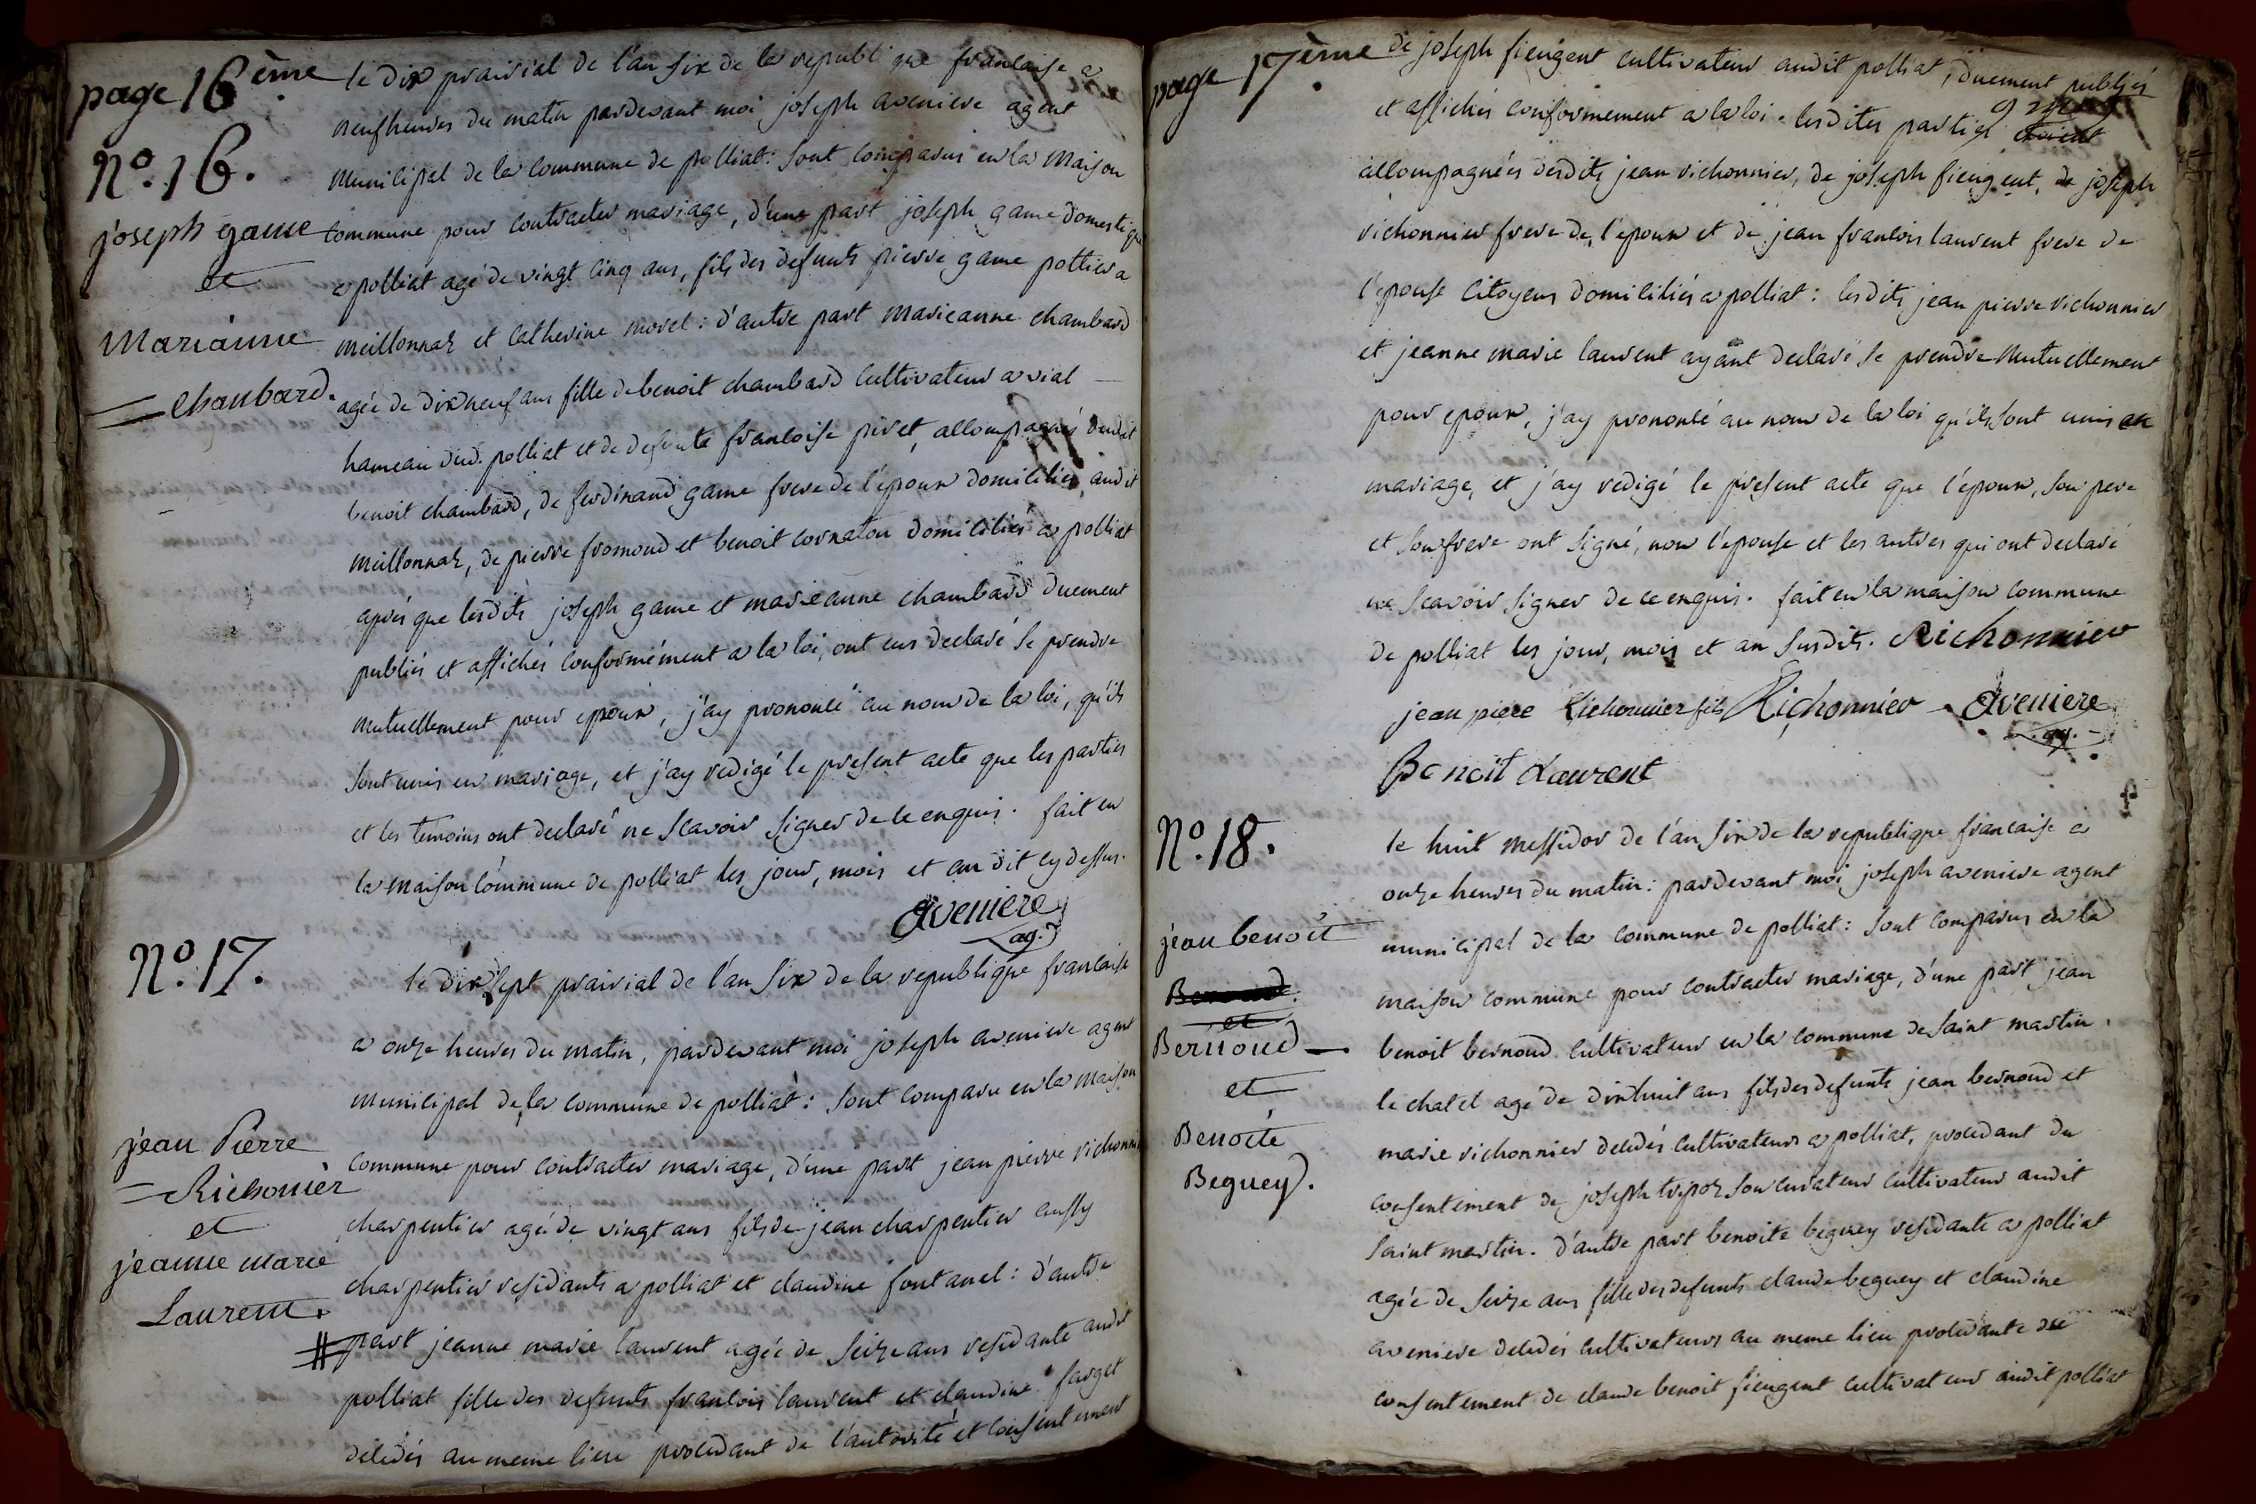 page 16ème
le dix prairial de l'an six de la republique francaise a
neuf heures du matin pardevant moi joseph aveniere agent
No. 16.
municipal de la commune de polliat: sont comparus en la maison
joseph game
et
Marianne
= Chambard.
commune pour contracter mariage, d'une part joseph game domestique
a polliat agé de vingt cinq ans, fils des defunts pierre game pottier a
meillonnaz et catherine morel: d'autre part marieanne chambard
agée de dix neuf ans fille de benoit chambard cultivateur a vial
hameau dud. polliat et de defunte francoise piret, accompagnés dudit
benoit chambard, de ferdinand game frere de l'epoux domiciliés audit
meillonnaz, de pierre fromond et benoit cornaton domiciliés a polliat
aprés que lesdits joseph game et marieanne chambard duement
publiés et affichés conformément a la loi, ont eus declaré se prendre
mutuellement pour epoux, j'ay prononcé au nom de la loi, qu'ils
sont unis en mariage, et j'ay redigé le present acte que les parties
et les temoins ont declaré ne scavoir signer de ce enquis. fait en
la maison commune de polliat les jour, mois et an dit cy dessus.
aveniere
ag.
No. 17.
le dix sept prairial de l'an six de la republique francaise
a onze heures du matin, pardevant moi joseph aveniere agent
municipal de la commune de polliat: sont comparu en la maison
jean Pierre
= Richonier
et
jeanne marie
Laurent.
commune pour contracter mariage, d'une part jean pierre richonnier
charpentier agé de vingt ans fils de jean charpentier aussy
charpentier residants a polliat et claudine fontanel: d'autre
# part jeanne marie laurent agée de seize ans residante audit
polliat fille des defunts francois laurent et claudine farget
décédés au meme lieu procedant de l'autorité et consentement
page 17ème
de joseph fiengent cultivateur audit polliat, duement publiés
et affichés conformement a la loi. lesdites parties
accompagnées desdits jean richonnier, de joseph fiengent, de joseph
richonnier frere de l'epoux et de jean francois laurent frere de
l'epouse citoyens domiciliés a polliat: lesdits jean pierre richonnier
et jeanne marie laurent ayant declaré se prendre mutuellement
pour epoux, j'ay prononcé au nom de la loi qu'ils sont unis en
mariage, et j'ay redigé le present acte que l'epoux, son pere
et son frere ont signé, non l'epouse et les autres qui ont declaré
ne scavoir signer de ce enquis. fait en la maison commune
de polliat les jour, mois et an susdits. Richonnier
jean piere Richonnier fils Richonnier aveniere
ag.
Benoit Laurent
No. 18.
le huit messidor de l'an six de la republique francaise a
onze heures du matin: pardevant moi joseph aveniere agent
jean benoit
et
Bernoud
et
Benoite
Beguey.
municipal de la commune de polliat: sont comparus en la
maison commune pour contracter mariage, d'une part jean
benoit bernoud cultivateur en la commune de saint martin
le chatel agé de dix huit ans fils des defunts jean bernoud et
marie richonnier decédés cultivateurs a polliat, procedant du
consentement de joseph tripoz son curateur cultivateur audit
saint martin. d'autre part benoite beguey residante a polliat
agée de seize ans fille des defunts claude beguey et claudine
aveniere decédés cultivateurs au meme lieu procedante du
consentement de claude benoit fiengent cultivateur audit polliat